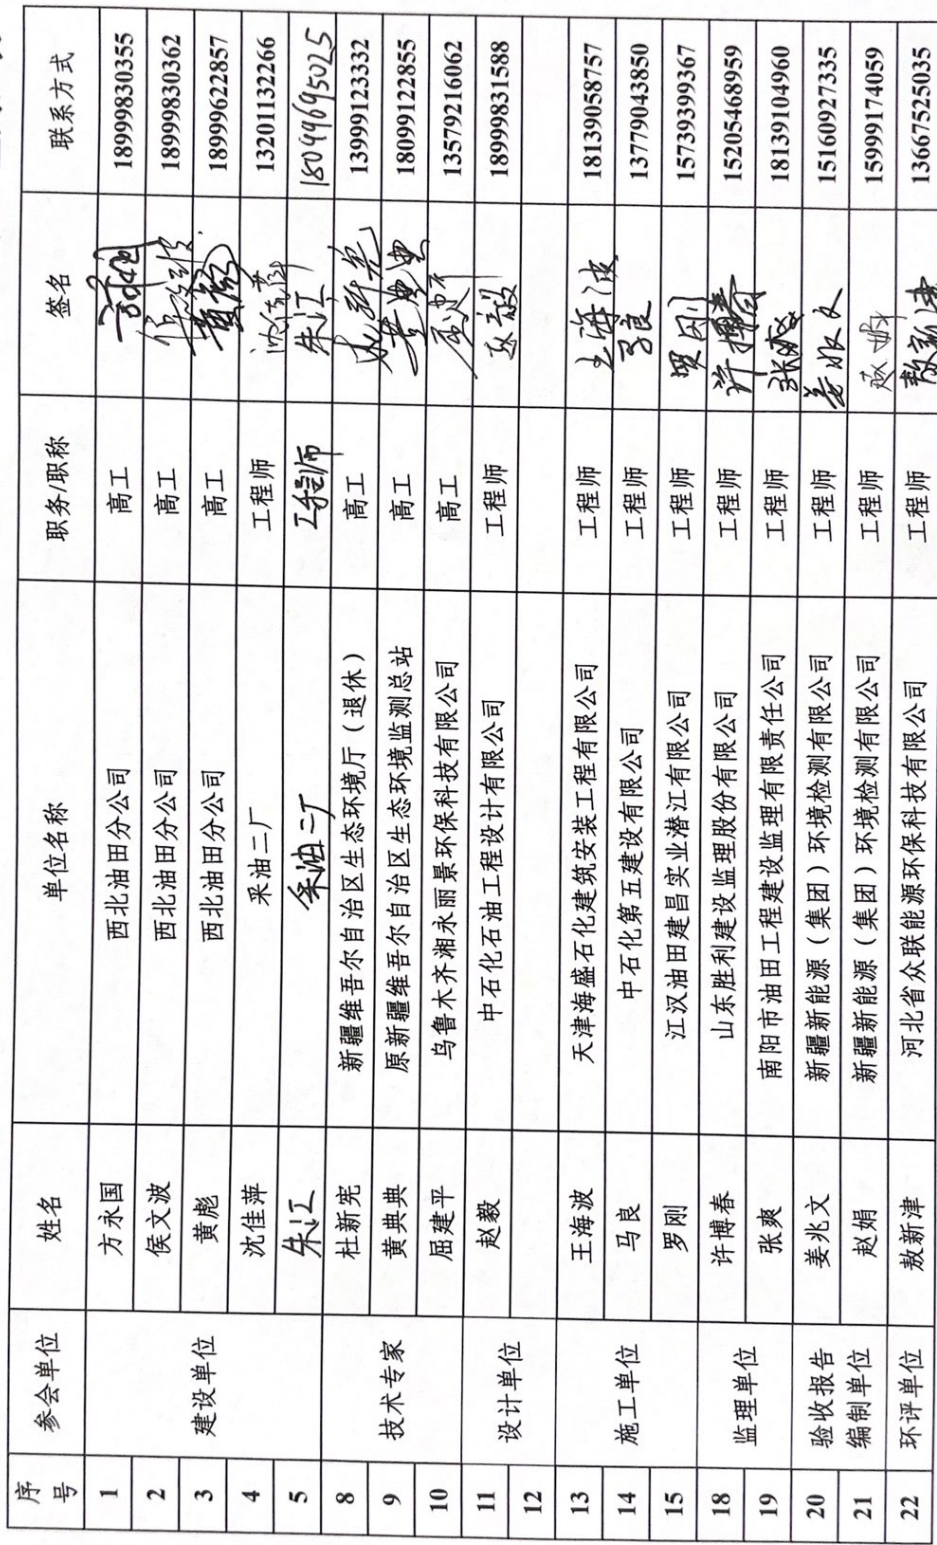 序号 参会单位 姓名 单位名称 职务/职称 签名 联系方式
1 建设单位 方永国 西北油田分公司 高工 18999830355
2 侯文波 西北油田分公司 高工 18999830362
3 黄彪 西北油田分公司 高工 黄彪 18999622857
4 沈佳萍 采油二厂 工程师 沈佳萍 13201132266
5 朱江 采油二厂 工程师 朱江 18094695025
8 技术专家 杜新宪 新疆维吾尔自治区生态环境厅（退休） 高工 13999123332
9 黄典典 原新疆维吾尔自治区生态环境监测总站 高工 黄典典 18099122855
10 屈建平 乌鲁木齐湘永丽景环保科技有限公司 高工 13579216062
11 设计单位 赵毅 中石化石油工程设计有限公司 工程师 赵毅 18999831588
12
13 施工单位 王海波 天津海盛石化建筑安装工程有限公司 工程师 王海波 18139058757
14 马良 中石化第五建设有限公司 工程师 马良 13779043850
15 罗刚 江汉油田建昌实业潜江有限公司 工程师 罗刚 15739399367
18 监理单位 许博春 山东胜利建设监理股份有限公司 工程师 许博春 15205468959
19 张爽 南阳市油田工程建设监理有限责任公司 工程师 张爽 18139104960
20 验收报告编制单位 姜兆文 新疆新能源（集团）环境检测有限公司 工程师 姜兆文 15160927335
21 赵娟 新疆新能源（集团）环境检测有限公司 工程师 赵娟 15999174059
22 环评单位 敖新津 河北省众联能源环保科技有限公司 工程师 敖新津 13667525035